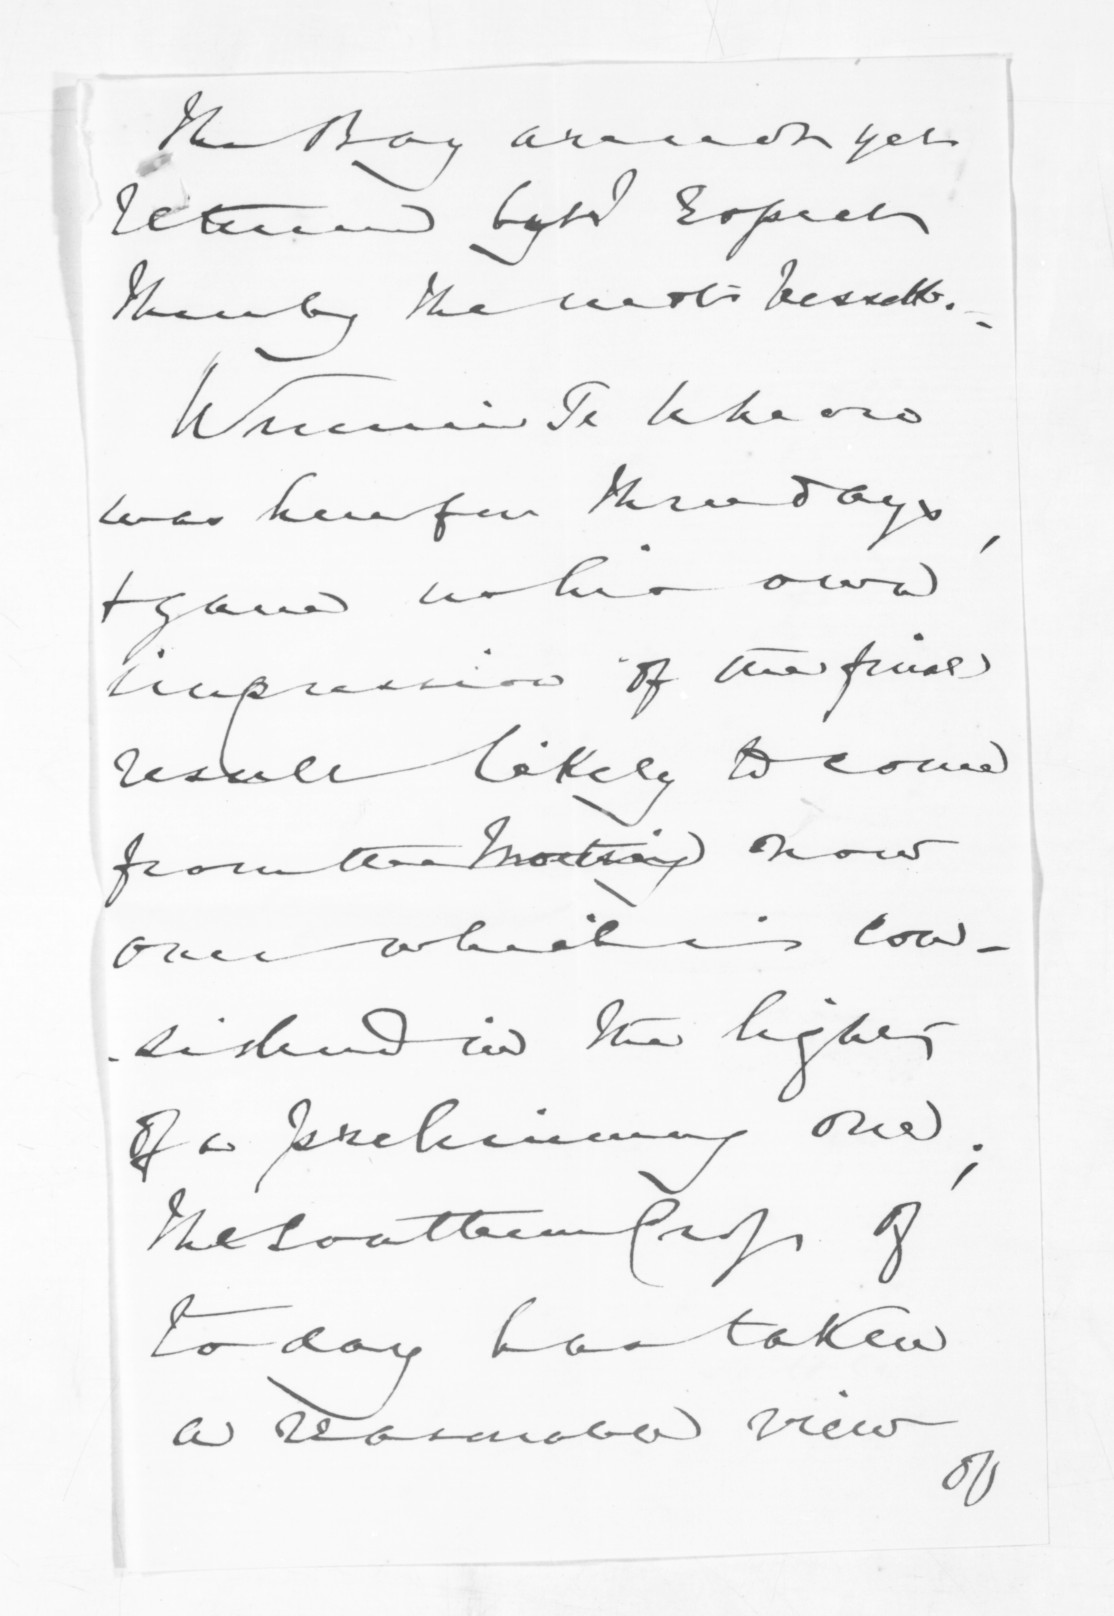 The Bay are not yet
returned but I expect
them by the next vessel. -
Wiremu Te Wheoro
was here for three days,
+ gave us his own
impression of the final
result likely to come
from the Meeting now
over which is con-
-sidered in the light
of a preliminary one;
The Southern Cross of
to day has taken
a reasonable view
of